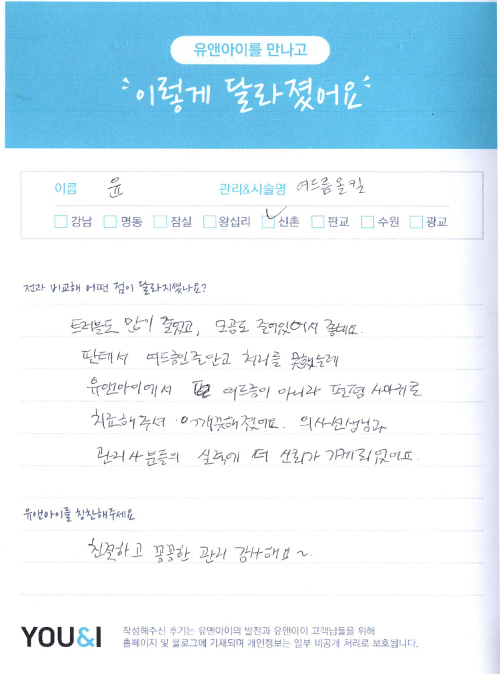 유앤아이를 만나고
이렇게 달라졌어요
이름 윤 관리&시술명 여드름올킬
강남 명동 잠실 왕십리 신촌 판교 수원 광교
전과 비교해 어떤 점이 달라지셨나요?
트러블도 많이 줄었고, 모공도 줄어있어서 좋네요.
딴데서 여드름인줄알고 처리를 못했는데
유앤아이에서 여드름이 아니라 편평 사마귀로
치료해주셔 깨끗해졌어요. 의사선생님과
관리사분들의 실력에 더 신뢰가 가게 되었어요.
유앤아이를 칭찬해주세요
친절하고 꼼꼼한 관리 감사해요~
YOU&I
작성해주신 후기는 유앤아이의 발전과 유앤아이 고객님들을 위해
홈페이지 및 블로그에 기재되며 개인정보는 일부 비공개 처리로 보호됩니다.